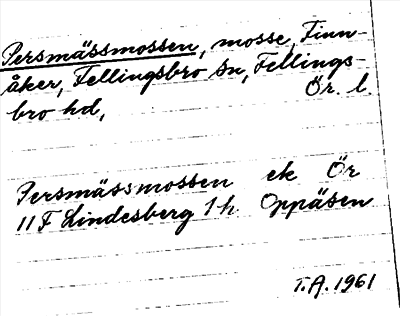 Persmässmossen, mosse, Finn-
åker, Fellingsbro sn, Fellings-
bro hd, Ör. l.
Persmässmossen ek Ör
11F Lindesberg 1h Oppåsen
T.A. 1961